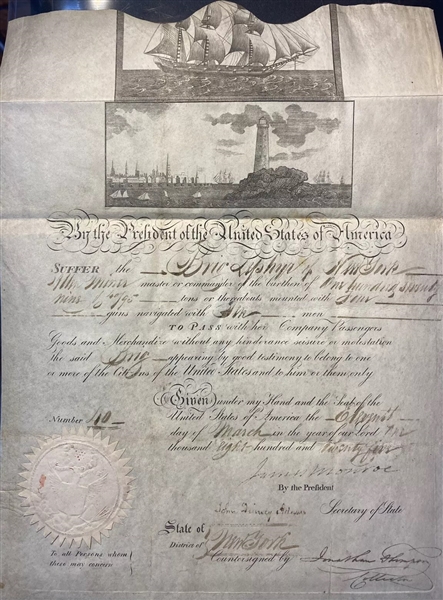 By the President of the United States of America
SUFFER the Brig Zephyr of New York
master or commander of the burthen of One hundred seventy
nine 6/95 tons or thereabouts mounted with Four
guns navigated with Ten men
TO PASS with her Company Passengers
Goods and Merchandize without any hinderance seisure or molestation
the said Brig appearing by good testimony to belong to one
or more of the Citizens of the United States and to him or them only
Given under my Hand and the Seal of the
Number 40 United States of America the
day of March in the year of our Lord One
thousand eight hundred and twenty five
James Monroe
By the President
John Quincy Adams Secretary of State
State of
District of New York
To all Persons whom
these may concern Countersigned by Jonathan Thompson
Collector